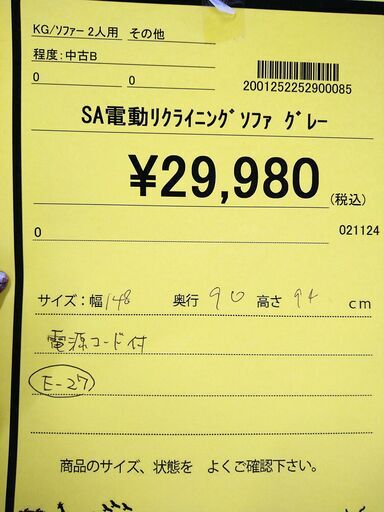 KG/ソファー 2人用 その他
程度:中古B
0 0
2001252252900085
SA電動リクライニングソファ グレー
¥29,980
(税込)
0 021124
サイズ:幅 148 奥行 90 高さ 94 cm
電源コード付
E-27
商品のサイズ、状態を よくご確認下さい。